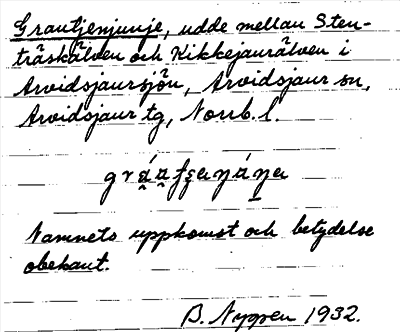 Grautjenjunje, udde mellan Sten-
träskälven och Kikkejaurälven i
Arvidsjaursjön, Arvidsjaur sn,
Arvidsjaur tg, Norrb. l.
Namnets uppkomst och betydelse
obekant.
B. Nygren 1932.